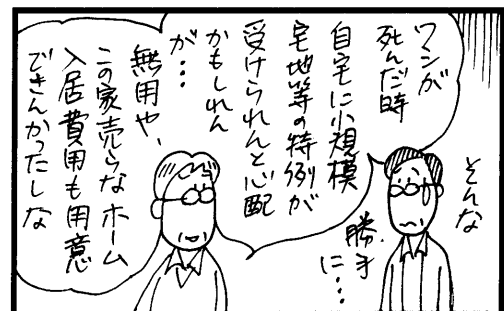 ワシが
死んだ時
自宅に小規模
宅地等の特例が
受けられんと心配
かもしれん
が…
無用や、
この家売らなホーム
入居費用も用意
できんかったしな
そんな
勝手
に…